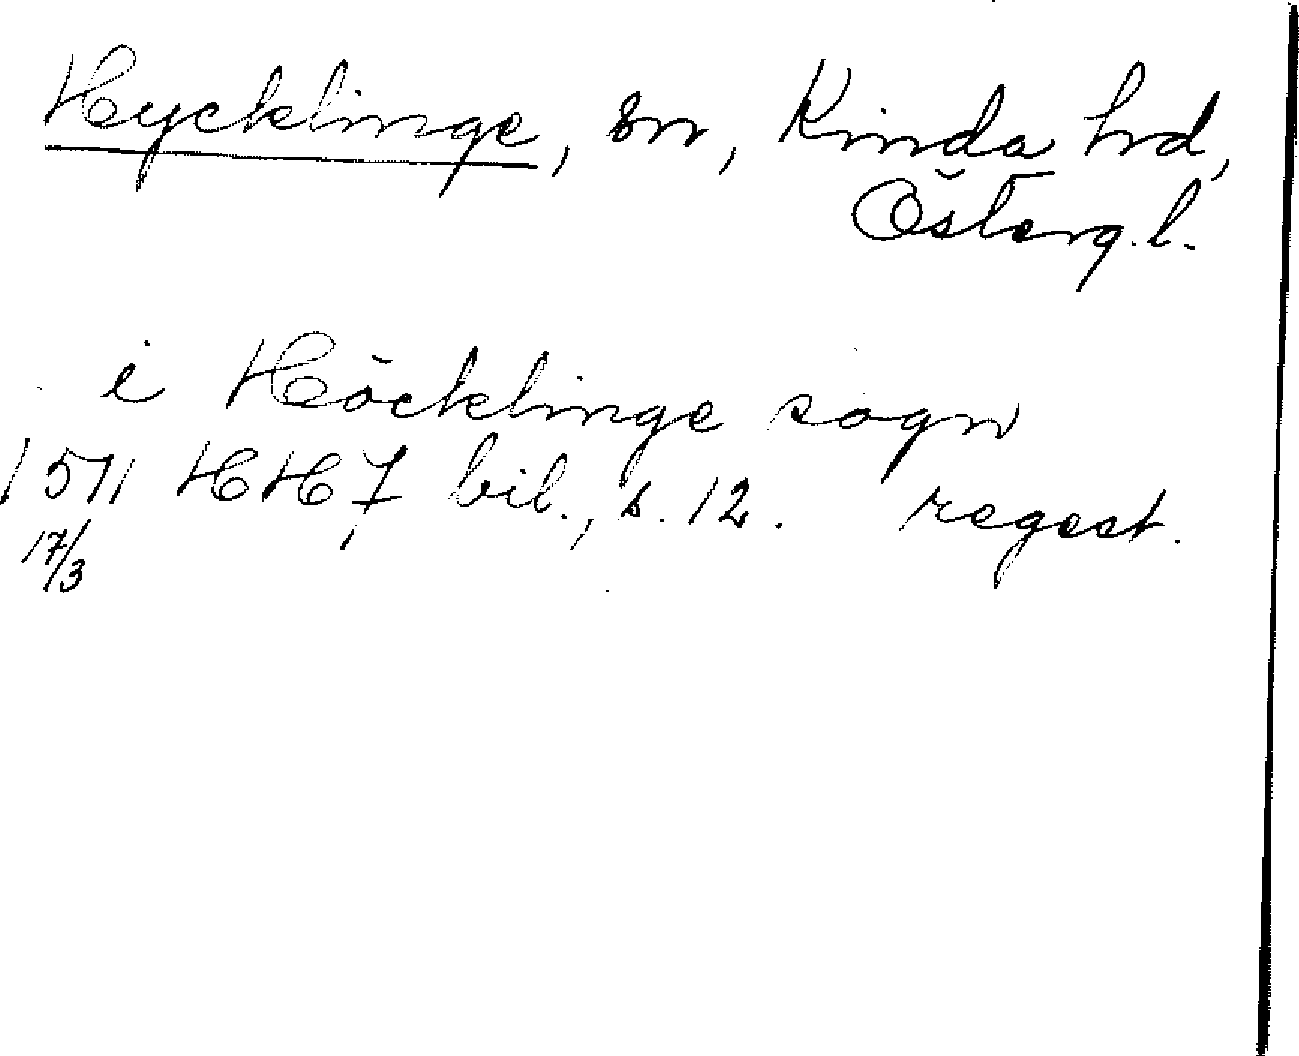 Hycklinge, sn, Kinda hd,
Österg.l.
i Höcklinge sogn
1571 HH 7, bil., s. 12. regest.
17/3